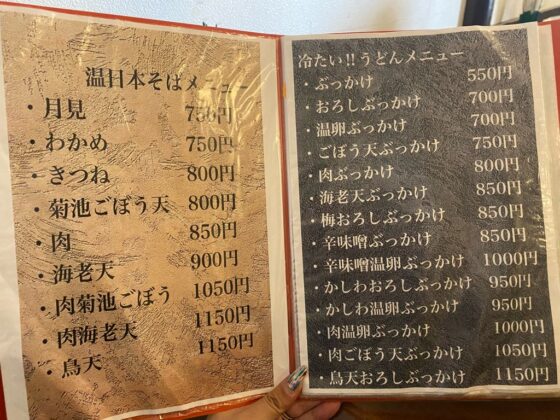 温日本そばメニュー
・月見 750円
・わかめ 750円
・きつね 800円
・菊池ごぼう天 800円
・肉 850円
・海老天 900円
・肉菊池ごぼう 1050円
・肉海老天 1150円
・鳥天 1150円
冷たい!!うどんメニュー
・ぶっかけ 550円
・おろしぶっかけ 700円
・温卵ぶっかけ 700円
・ごぼう天ぶっかけ 750円
・肉ぶっかけ 800円
・海老天ぶっかけ 850円
・梅おろしぶっかけ 850円
・辛味噌ぶっかけ 850円
・辛味噌温卵ぶっかけ 1000円
・かしわおろしぶっかけ 950円
・かしわ温卵ぶっかけ 950円
・肉温卵ぶっかけ 1000円
・肉ごぼう天ぶっかけ 1050円
・鳥天おろしぶっかけ 1150円